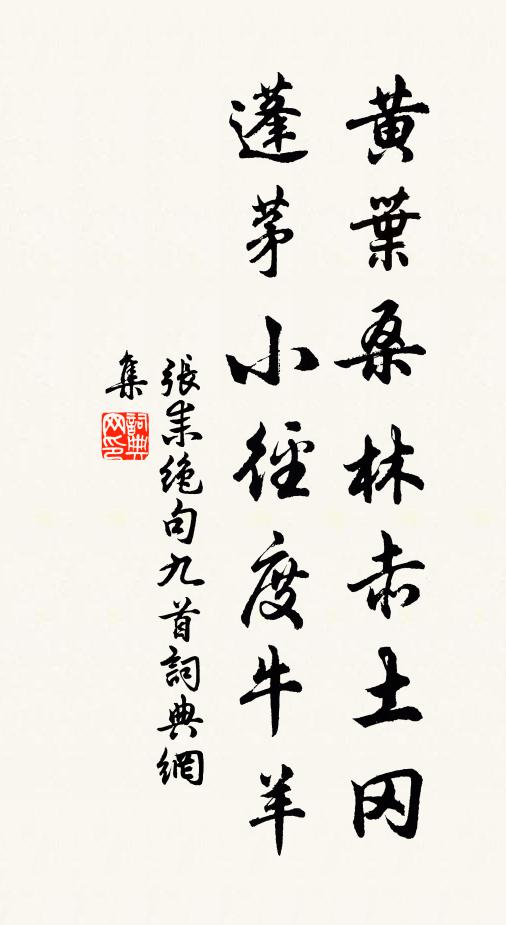 黃葉桑林赤土冈
蓬茅小徑度牛羊
張耒绝句九首詞典網
集
詞典
网印